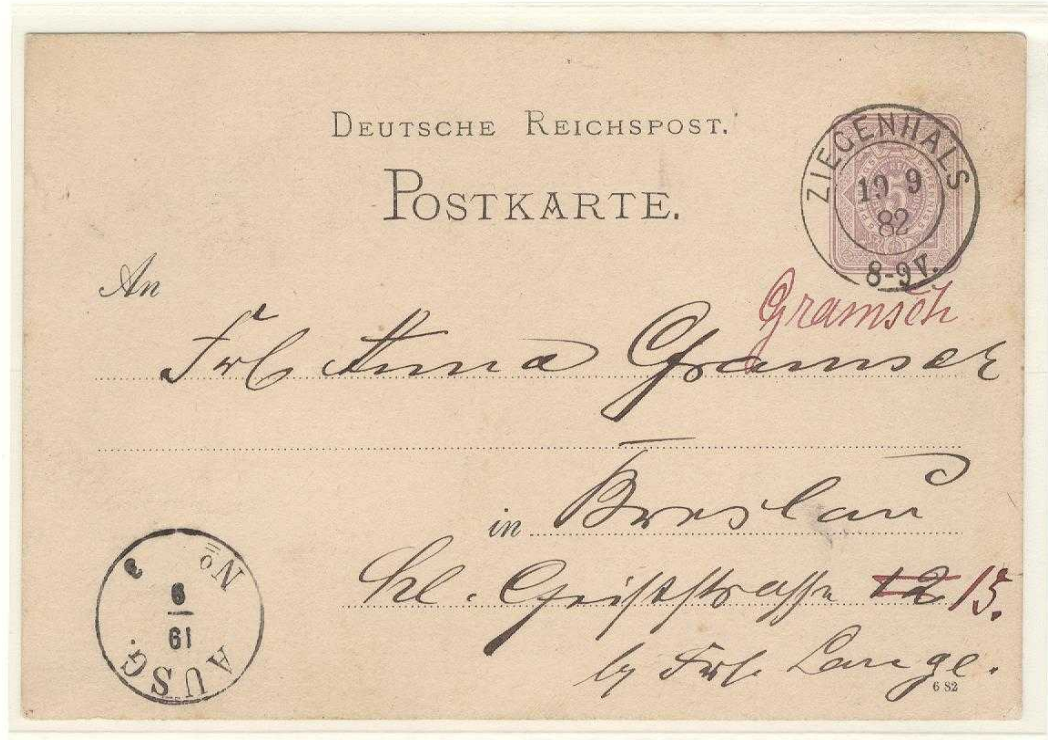 DEUTSCHE REICHSPOST.
POSTKARTE.
ZIEGENHALS
19 9
82
8-9V.
An
Gramsch
Frl Anna Gramsch
in Breslau
kl. Geiststrasse 12 15.
by Frl. Lange.
6 82
No 3
9
19
AUSG.